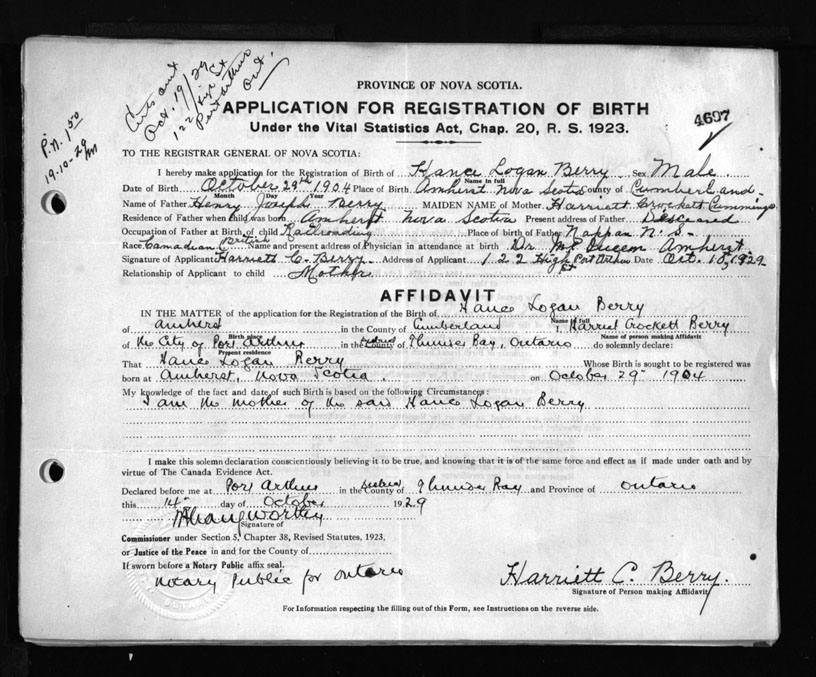 Certs sent
Oct. 19/29
122 High St
Port Arthur
Ont.
P.N. 1.50
19-10-29
PROVINCE OF NOVA SCOTIA.
APPLICATION FOR REGISTRATION OF BIRTH
4697
Under the Vital Statistics Act, Chap. 20, R. S. 1923.
TO THE REGISTRAR GENERAL OF NOVA SCOTIA:
I hereby make application for the Registration of Birth of Hance Logan Berry Sex Male
Name in full
Date of Birth October 29th 1904 Place of Birth Amherst Nova Scotia County of Cumberland
Month Day Year
Name of Father Henry Joseph Berry MAIDEN NAME of Mother Harriett Crockett Cummings
Residence of Father when child was born Amherst Nova Scotia Present address of Father Desceaned
Occupation of Father at Birth of child Railroading Place of birth of Father Nappan N.S.
Race Canadian British Name and present address of Physician in attendance at birth Dr Amherst
Signature of Applicant Harriett C. Berry Address of Applicant 122 High St Port Arthur Date Oct. 15, 1929
Relationship of Applicant to child Mother
AFFIDAVIT
IN THE MATTER of the application for the Registration of the Birth of Hance Logan Berry
Name in full
of Amherst in the County of Cumberland I, Harriet Crockett Berry
Birth place Name of person making Affidavit
of the City of Port Arthur in the District County of Thunder Bay, Ontario do solemnly declare:
Present residence
That Hance Logan Berry Whose Birth is sought to be registered was
born at Amherst, Nova Scotia. on October 29th 1904
My knowledge of the fact and date of such Birth is based on the following Circumstances:
I am the mother of the said Hance Logan Berry
I make this solemn declaration conscientiously believing it to be true, and knowing that it is of the same force and effect as if made under oath and by
virtue of The Canada Evidence Act.
Declared before me at Port Arthur in the District County of Thunder Bay and Province of Ontario
this 14th day of October 1929
Signature of
Commissioner under Section 5, Chapter 38, Revised Statutes, 1923,
or Justice of the Peace in and for the County of
If sworn before a Notary Public affix seal.
Notary Public for Ontario
Harriett C. Berry.
Signature of Person making Affidavit
For Information respecting the filling out of this Form, see Instructions on the reverse side.